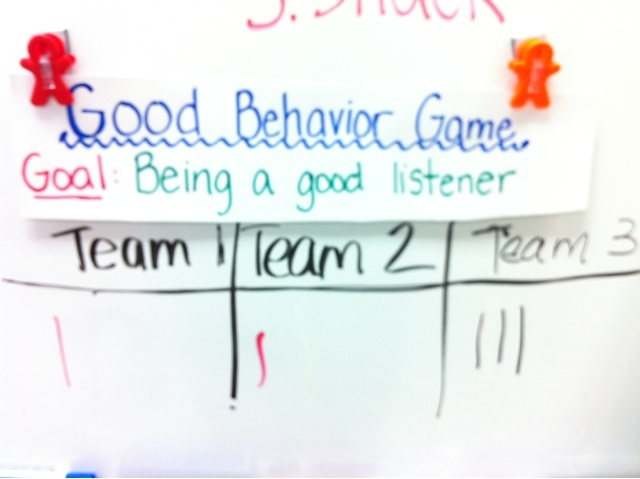 3. Snack
Good Behavior Game
Goal: Being a good listener
Team 1 Team 2 Team 3
| | |||